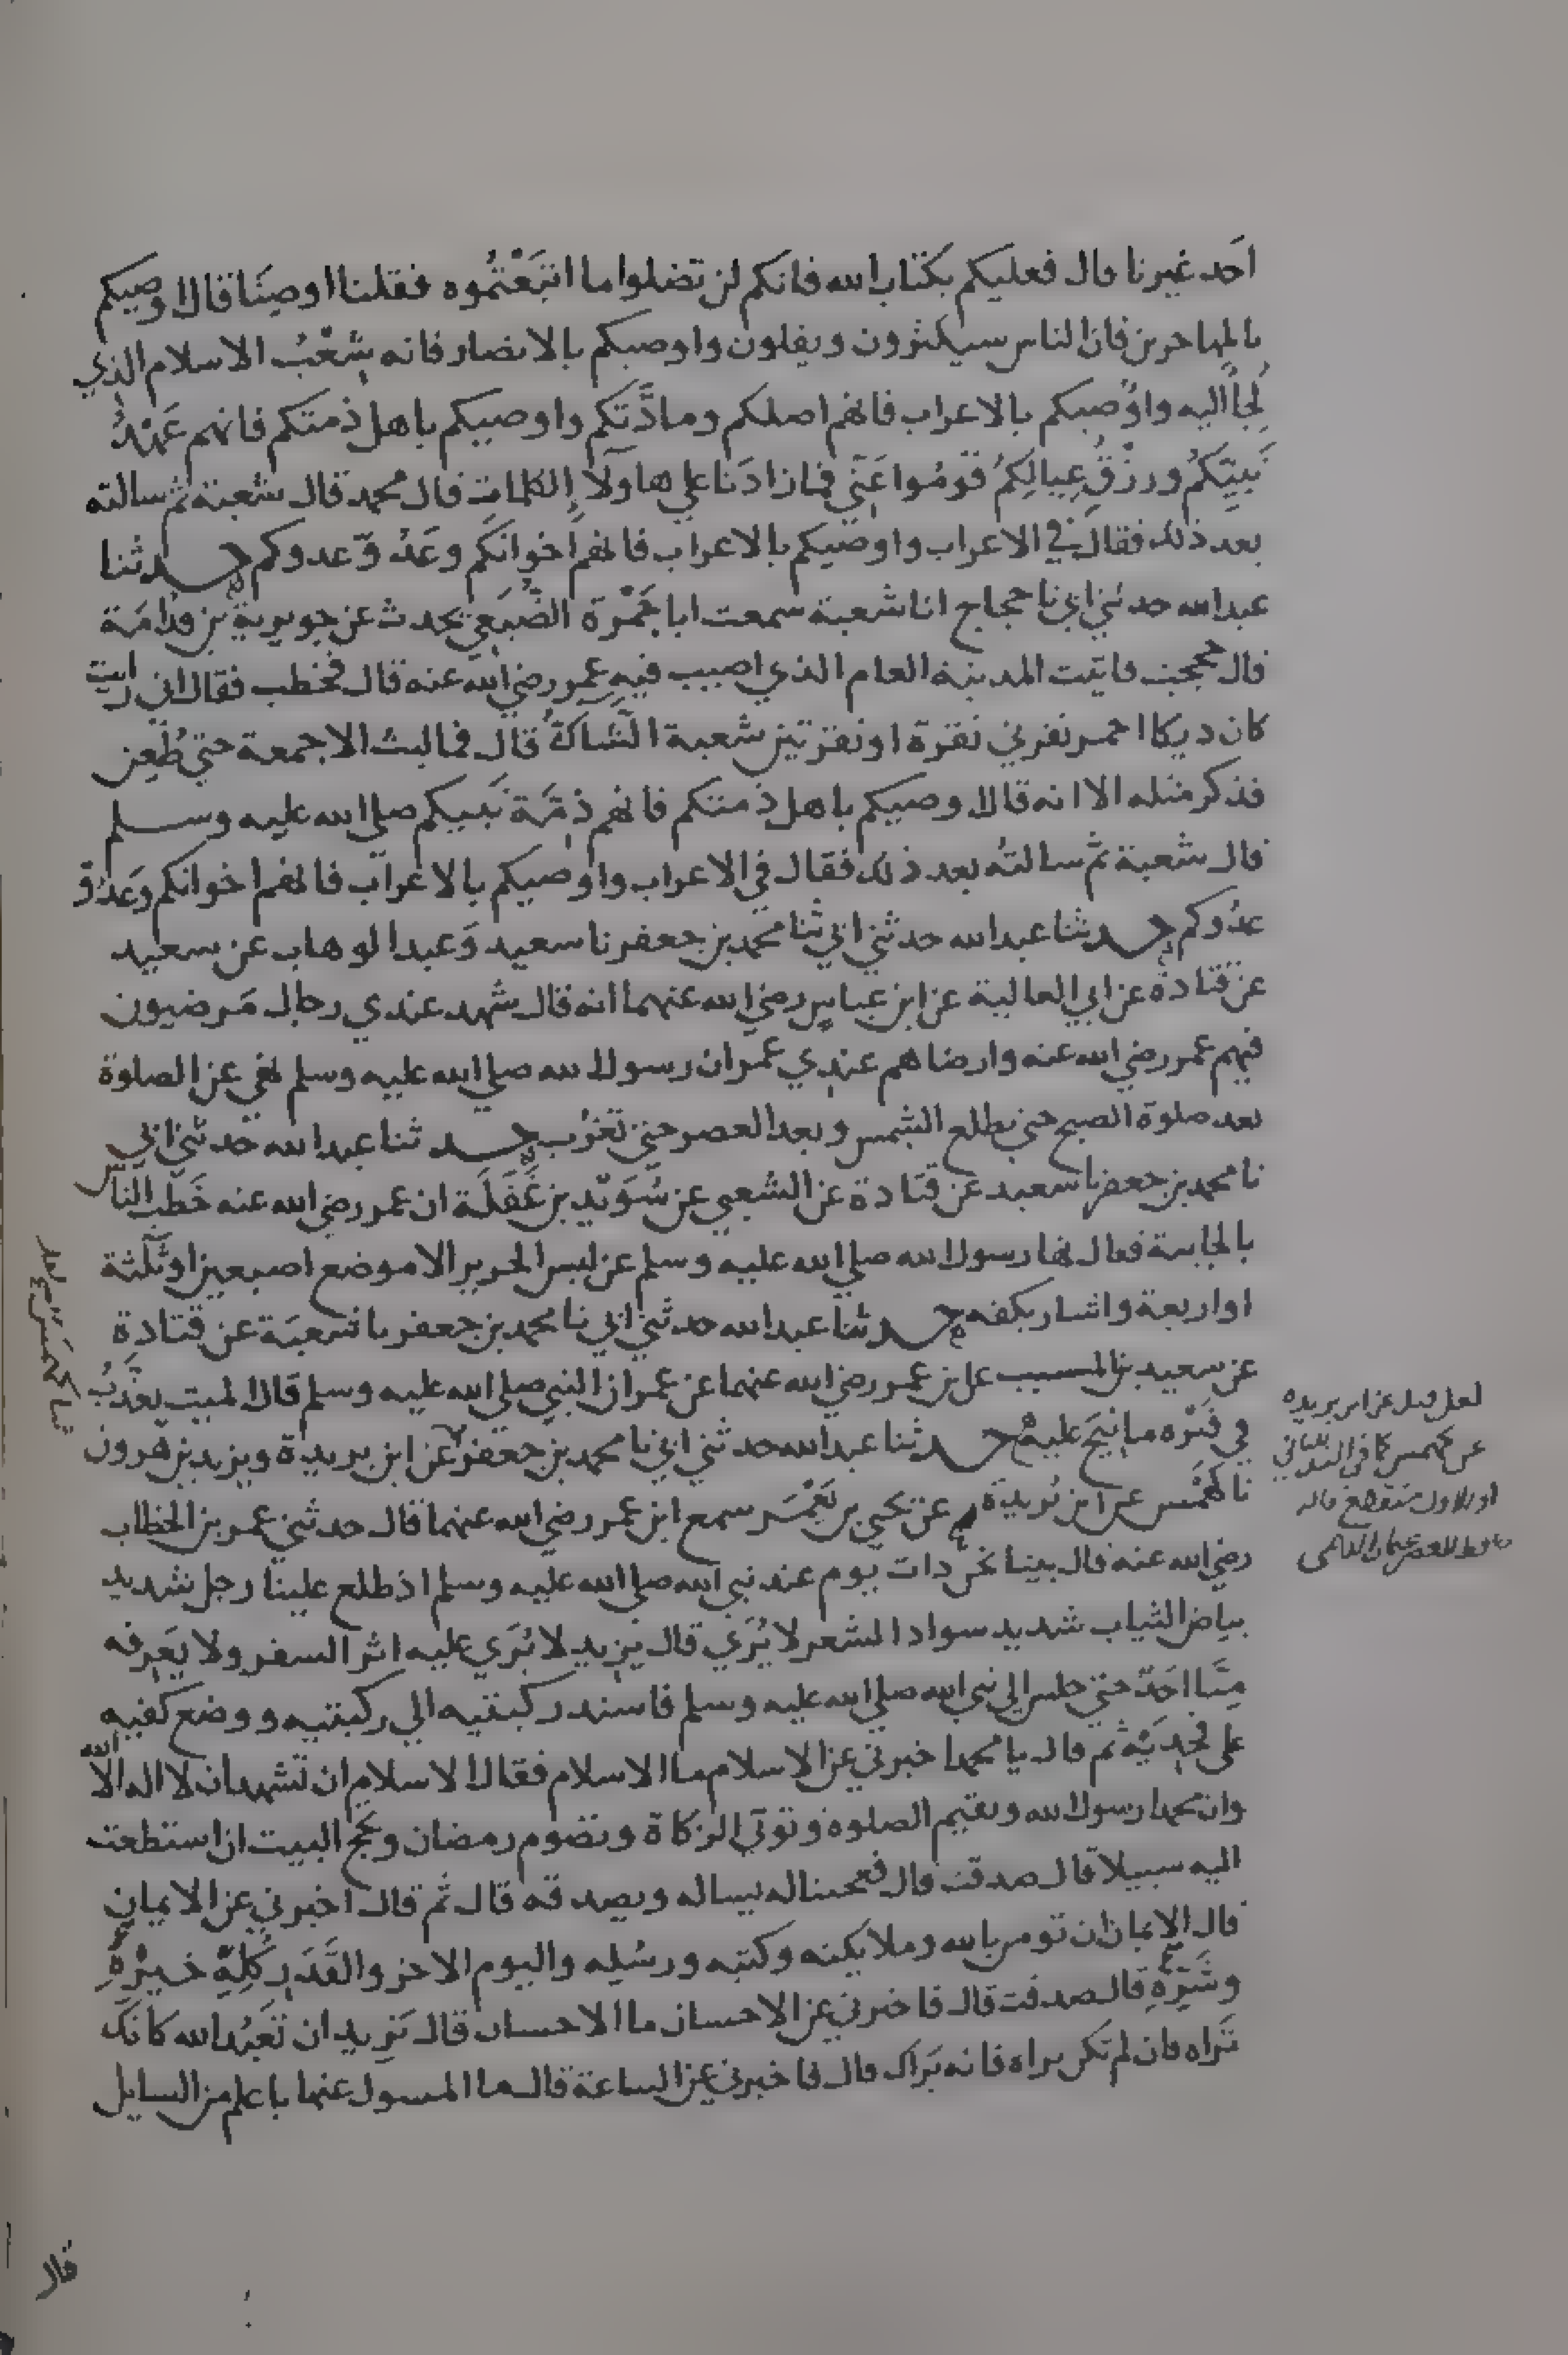 احد غيرنا قال فعليكم بكتاب الله فانكم لن تضلوا ما اتبعتموه فقلنا اوصنا قال اوصيكم
بالمهاجرين فان الناس سيكثرون ويقلون واوصيكم بالانصار فانه شعب الاسلام الذي
لجأ اليه واوصيكم بالاعراب فانهم اصلكم ومادتكم واوصيكم باهل ذمتكم فانهم عهد
نبيكم ورزق عيالكم قوموا عني فما زادنا علي هاولا الكلمات قال محمد قال شعبة ثم سالته
بعد ذلك فقال في الاعراب واوصيكم بالاعراب فانهم اخوانكم وعدو عدوكم حدثنا
عبدالله حدثني ابي نا حجاج انا شعبة سمعت ابا جمرة الضبعي يحدث عن جويرية بن قدامة
قال حججت فاتيت المدينة العام الذي اصيب فيه عمر رضي الله عنه قال فخطب فقال اني رايت
كان ديكا احمر نقرني نقرة او نقرتين شعبة الشاك قال فما لبث الا جمعة حتي طعن
فذكر مثله الا انه قال اوصيكم باهل ذمتكم فانهم ذمة نبيكم صلي الله عليه وسلم
قال شعبة ثم سالته بعد ذلك فقال في الاعراب واوصيكم بالاعراب فانهم اخوانكم وعدو
عدوكم حدثنا عبدالله حدثني ابي ثنا محمد بن جعفر نا سعيد وعبد الوهاب عن سعيد
عن قتادة عن ابي العالية عن ابن عباس رضي الله عنهما انه قال شهد عندي رجال مرضيون
فيهم عمر رضي الله عنه وارضاهم عندي عمر ان رسول الله صلي الله عليه وسلم نهي عن الصلوة
بعد صلوة الصبح حتي تطلع الشمس وبعد العصر حتي تغرب حدثنا عبدالله حدثني ابي
نا محمد بن جعفر نا سعيد عن قتادة عن الشعبي عن سويد بن غفلة ان عمر رضي الله عنه خطب الناس
بالجابية فقال نها رسول الله صلي الله عليه وسلم عن لبس الحرير الا موضع اصبعين او ثلثة
او اربعة واشار بكفه حدثنا عبدالله حدثني ابي نا محمد بن جعفر نا شعبة عن قتادة
عن سعيد بن المسيب عن ابن عمر رضي الله عنهما عن عمر ان النبي صلي الله عليه وسلم قال الميت يعذب
في قبره ما نيح عليه حدثنا عبدالله حدثني ابي نا محمد بن جعفر عن ابن بريدة ويزيد بن هرون
نا كهمس عن ابن بريدة عن يحيي بن يعمر سمع ابن عمر رضي الله عنهما قال حدثني عمر بن الخطاب
رضي الله عنه قال بينا نحن ذات يوم عند نبي الله صلي الله عليه وسلم اذ طلع علينا رجل شديد
بياض الثياب شديد سواد الشعر لا يري قال يزيد لا نري عليه اثر السفر ولا يعرفه
منا احد حتي جلس الي نبي الله صلي الله عليه وسلم فاسند ركبتيه الي ركبتيه ووضع كفيه
علي فخديه ثم قال يا محمد اخبرني عن الاسلام ما الاسلام فقال الاسلام ان تشهد ان لا اله الا الله
وان محمدا رسول الله وتقيم الصلوة وتوتي الزكاة وتصوم رمضان وتحج البيت ان استطعت
اليه سبيلا قال صدقت قال فعجبنا له يساله ويصدقه قال ثم قال اخبرني عن الايمان
قال الايمان ان تومن بالله وملايكته وكتبه ورسله واليوم الاخر والقدر كله خيره
وشره قال صدقت قال فاخبرني عن الاحسان ما الاحسان قال يزيد ان تعبد الله كانك
تراه فان لم تكن تراه فانه يراك قال فاخبرني عن الساعة قال ما المسول عنها باعلم من السايل
قال
لعل قبل عن ابن بريده
عن كهمس كما في
او الاول منقطع قاله